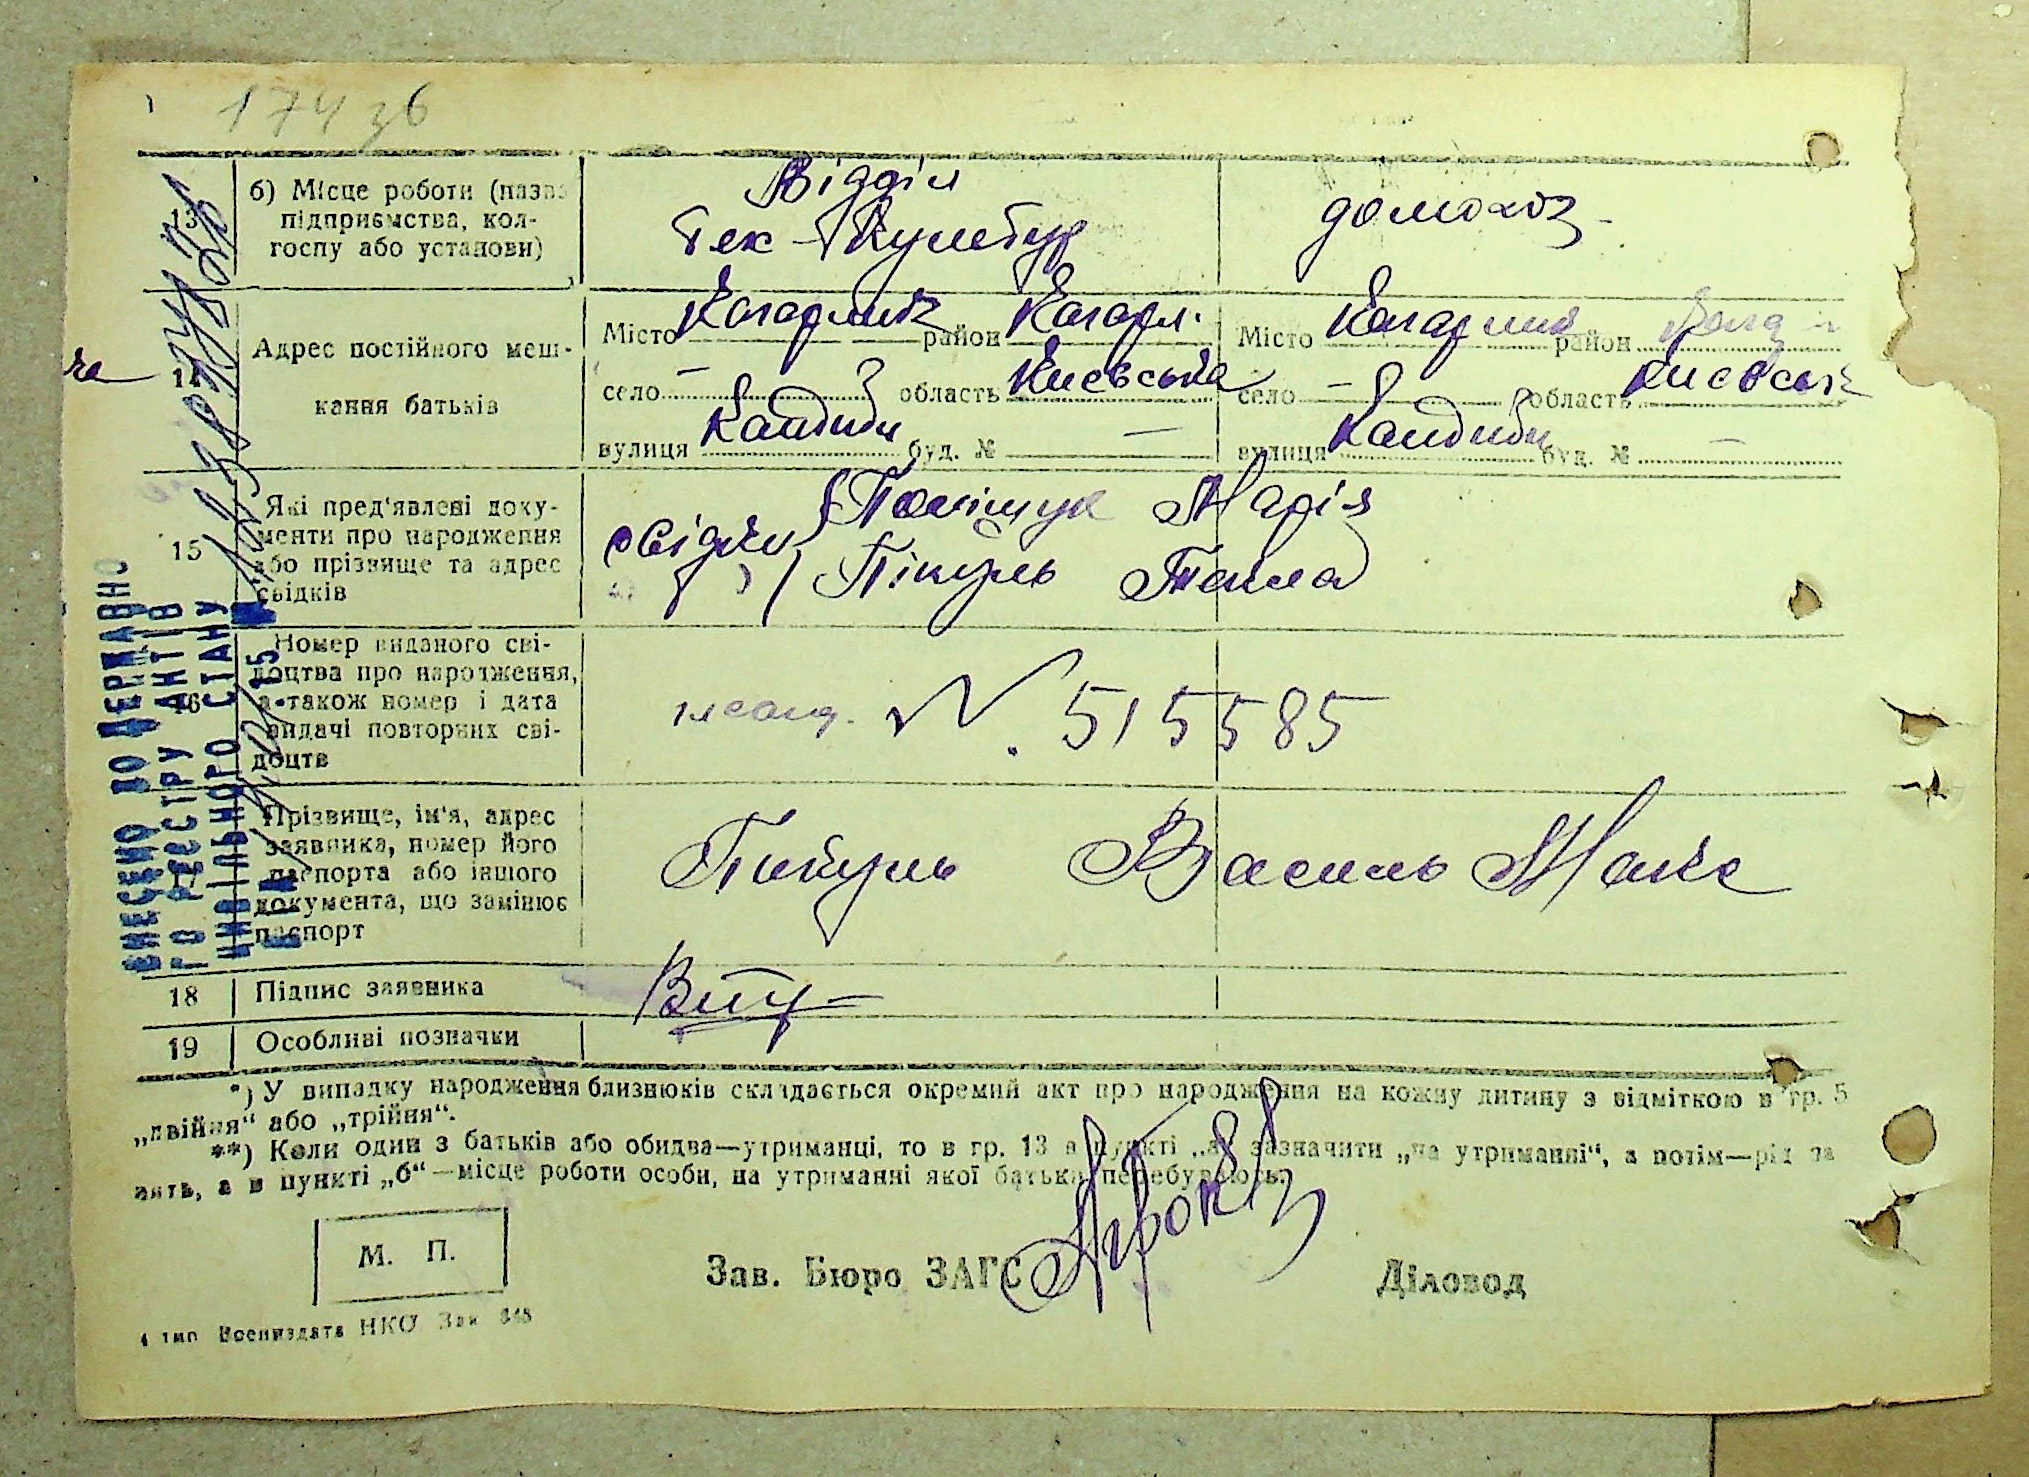 174 зв
13
б) Місце роботи (назва
підприємства, кол-
госпу або установи)
Відділ
Тех-Культур
домохоз.
14
Адрес постійного меш-
кання батьків
Місто Кагарлик район Кагарл.
село — область Киевська
вулиця буд. № —
Місто Кагарлик район
село — область Киевськ
вулиця буд. № —
15
Які пред'явлені доку-
менти про народження
або прізвище та адрес
свідків
свідки
Поліщук Марія
Пікуль
16
Номер виданого сві-
доцтва про народження,
а також номер і дата
видачі повторних сві-
доцтв
N. 515585
17
Прізвище, ім'я, адрес
заявника, номер його
паспорта або іншого
документа, що замінює
паспорт
Пикуль Василь
18 Підпис заявника
19 Особливі позначки
ВНЕСЕНО ДО ДЕРЖАВНО
ГО РЕЄСТРУ АКТІВ
ЦИВІЛЬНОГО СТАНУ
*) У випадку народження близнюків складається окремий акт про народження на кожну дитину з відміткою в гр. 5
„двійня“ або „трійня“.
**) Коли один з батьків або обидва—утриманці, то в гр. 13 в пункті „а“ зазначити „на утриманні“, а потім—рід за
нять, а в пункті „б“—місце роботи особи, на утриманні якої батьки перебувають.
М. П.
Зав. Бюро ЗАГС
Діловод
4 тип Воениздата НКО Зак 645